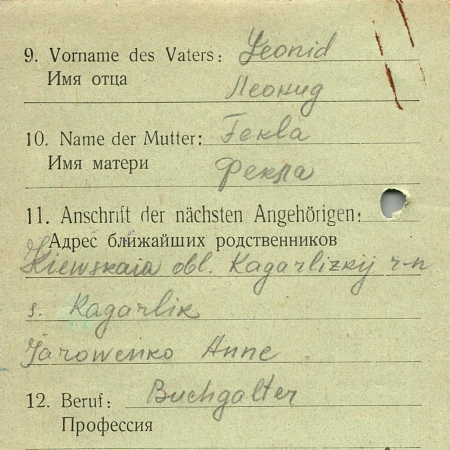 9. Vorname des Vaters: Leonid
Имя отца Леонид
10. Name der Mutter: Fekla
Имя матери Фекла
11. Anschrift der nächsten Angehörigen:
Адрес ближайших родственников
Kiewskaia obl. Kagarlizkij r-n
s. Kagarlik
Jarowenko Anne
12. Beruf: Buchgalter
Профессия